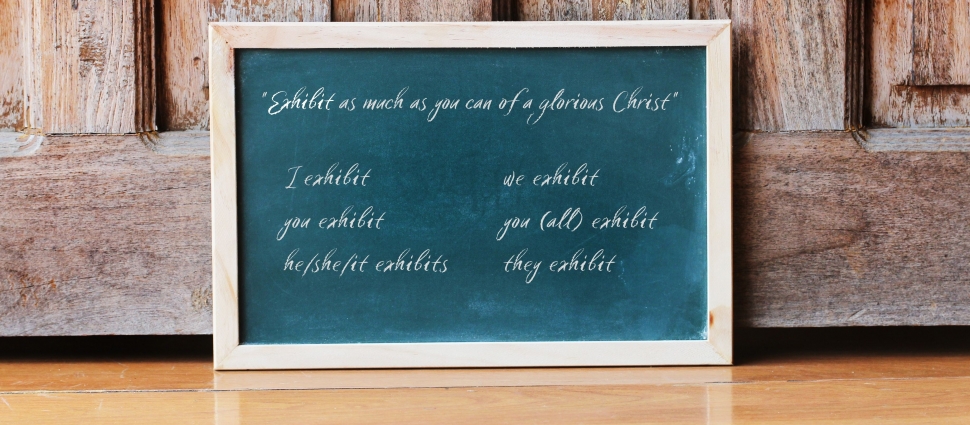 "Exhibit as much as you can of a glorious Christ"
I exhibit
you exhibit
he/she/it exhibits
we exhibit
you (all) exhibit
they exhibit